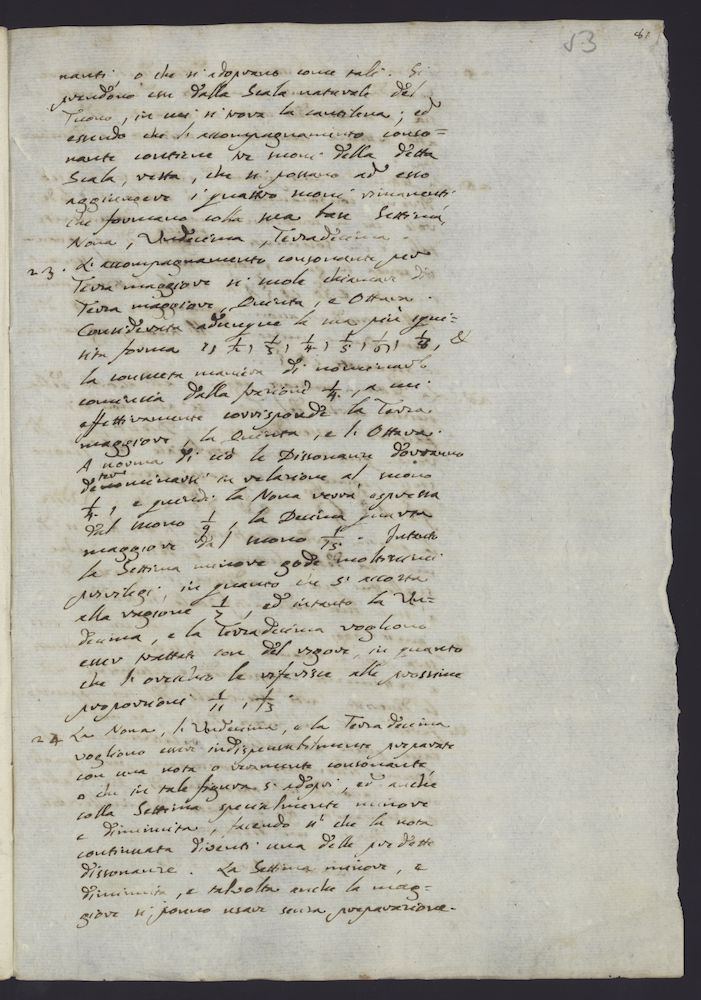 53
81
nanti, o che si adoprano come tali. Si
prendono esse dalla Scala naturale del
Tuono, in cui si trova la cantilena; ed
essendo che l'accompagnamento conso=
nante contiene tre suoni della detta
Scala, resta, che si possano ad esso
aggiungere i quattro suoni rimanenti
che formano colla sua base Settima,
Nona, Undecima, Terzadecima.
23. L'accompagnamento consonante per
Terza maggiore si suole chiamare di
Terza maggiore, Quinta, e Ottava.
Considerata adunque la sua più squi=
sita forma 1, 1/2, 1/3, 1/4, 1/5, 1/6, 1/8, &
la consueta maniera di nominarlo
comincia dalla frazione 1/4, a cui
effettivamente corrisponde la Terza
maggiore, la Quinta, e l'Ottava.
A norma di ciò le Dissonanze dovranno
determinarsi in relazione al suono
1/4, e quindi la Nona verrà espressa
dal suono 1/9, la Decima quarta
maggiore dal suono 1/15. Intanto
la Settima minore gode moltissimi
privilegi, in quanto che si accosta
alla ragione 1/7, ed intanto la Un=
decima, e la Terzadecima vogliono
esser trattate con del rigore, in quanto
che l'orecchio le riferisce alle prossime
proporzioni 1/11, 1/13.
24 La Nona, l'Undecima, e la Terzadecima
vogliono essere indispensabilmente preparate
con una nota o veramente consonante
o che in tale figura si adopri, ed anche
colla Settima specialmente minore
e diminuita, facendo sì che la nota
continuata diventi una delle predette
dissonanze. La Settima minore, e
diminuita, e talvolta anche la mag=
giore si ponno usare senza preparazione.